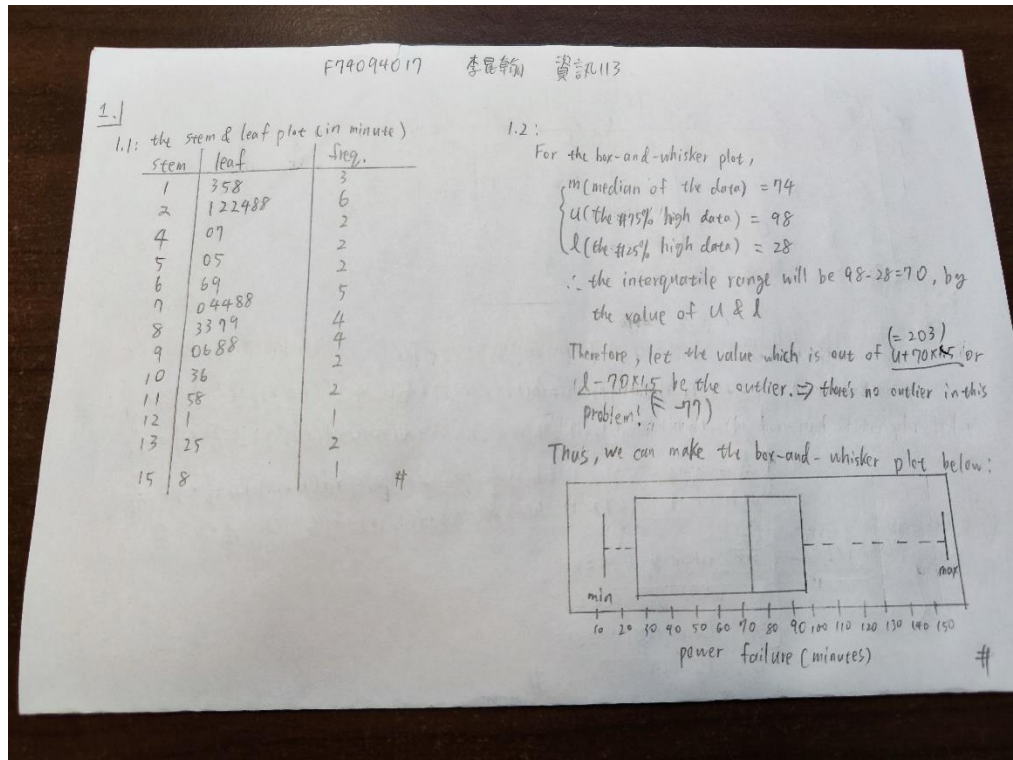 F74094017 李昆翰 資訊113
1.
1.1: the stem & leaf plot (in minute)
stem leaf freq.
1 358 3
2 122488 6
4 07 2
5 05 2
6 69 2
7 04488 5
8 3379 4
9 0688 4
10 36 2
11 58 2
12 1 1
13 25 2
15 8 1 #
1.2:
For the box-and-whisker plot,
m(median of the data) = 74
u(the #75% high data) = 98
l(the #25% high data) = 28
∴ the interquatile range will be 98-28=70, by
the value of u & l
(=203)
Therefore, let the value which is out of u+70×1.5 or
l-70×1.5 be the outlier. ⇒ there's no outlier in this
problem! (= -77)
Thus, we can make the box-and-whisker plot below:
min max
10 20 30 40 50 60 70 80 90 100 110 120 130 140 150
power failure (minutes) #